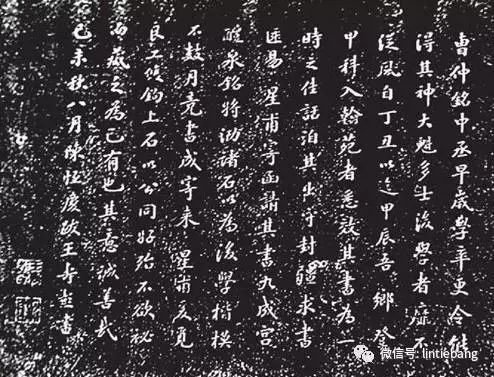 曹仲銘中丞早歲學率更令能
得其神大魁多士後學者靡不
從風自丁丑以迄甲辰吾鄉登
甲科入翰苑者悉效其書為一
時之佳話洎其出守封疆求書
匪易星甫寄函請其書九成宮
醴泉銘將泐諸石以為後學楷模
不數月竟書成寄來星甫更覓
良工雙鉤上石以公同好殆不欲祕
而藏之為己有也其意誠善哉
己未秋八月陳恒慶跋王壽彭書
微信号: lintiebang